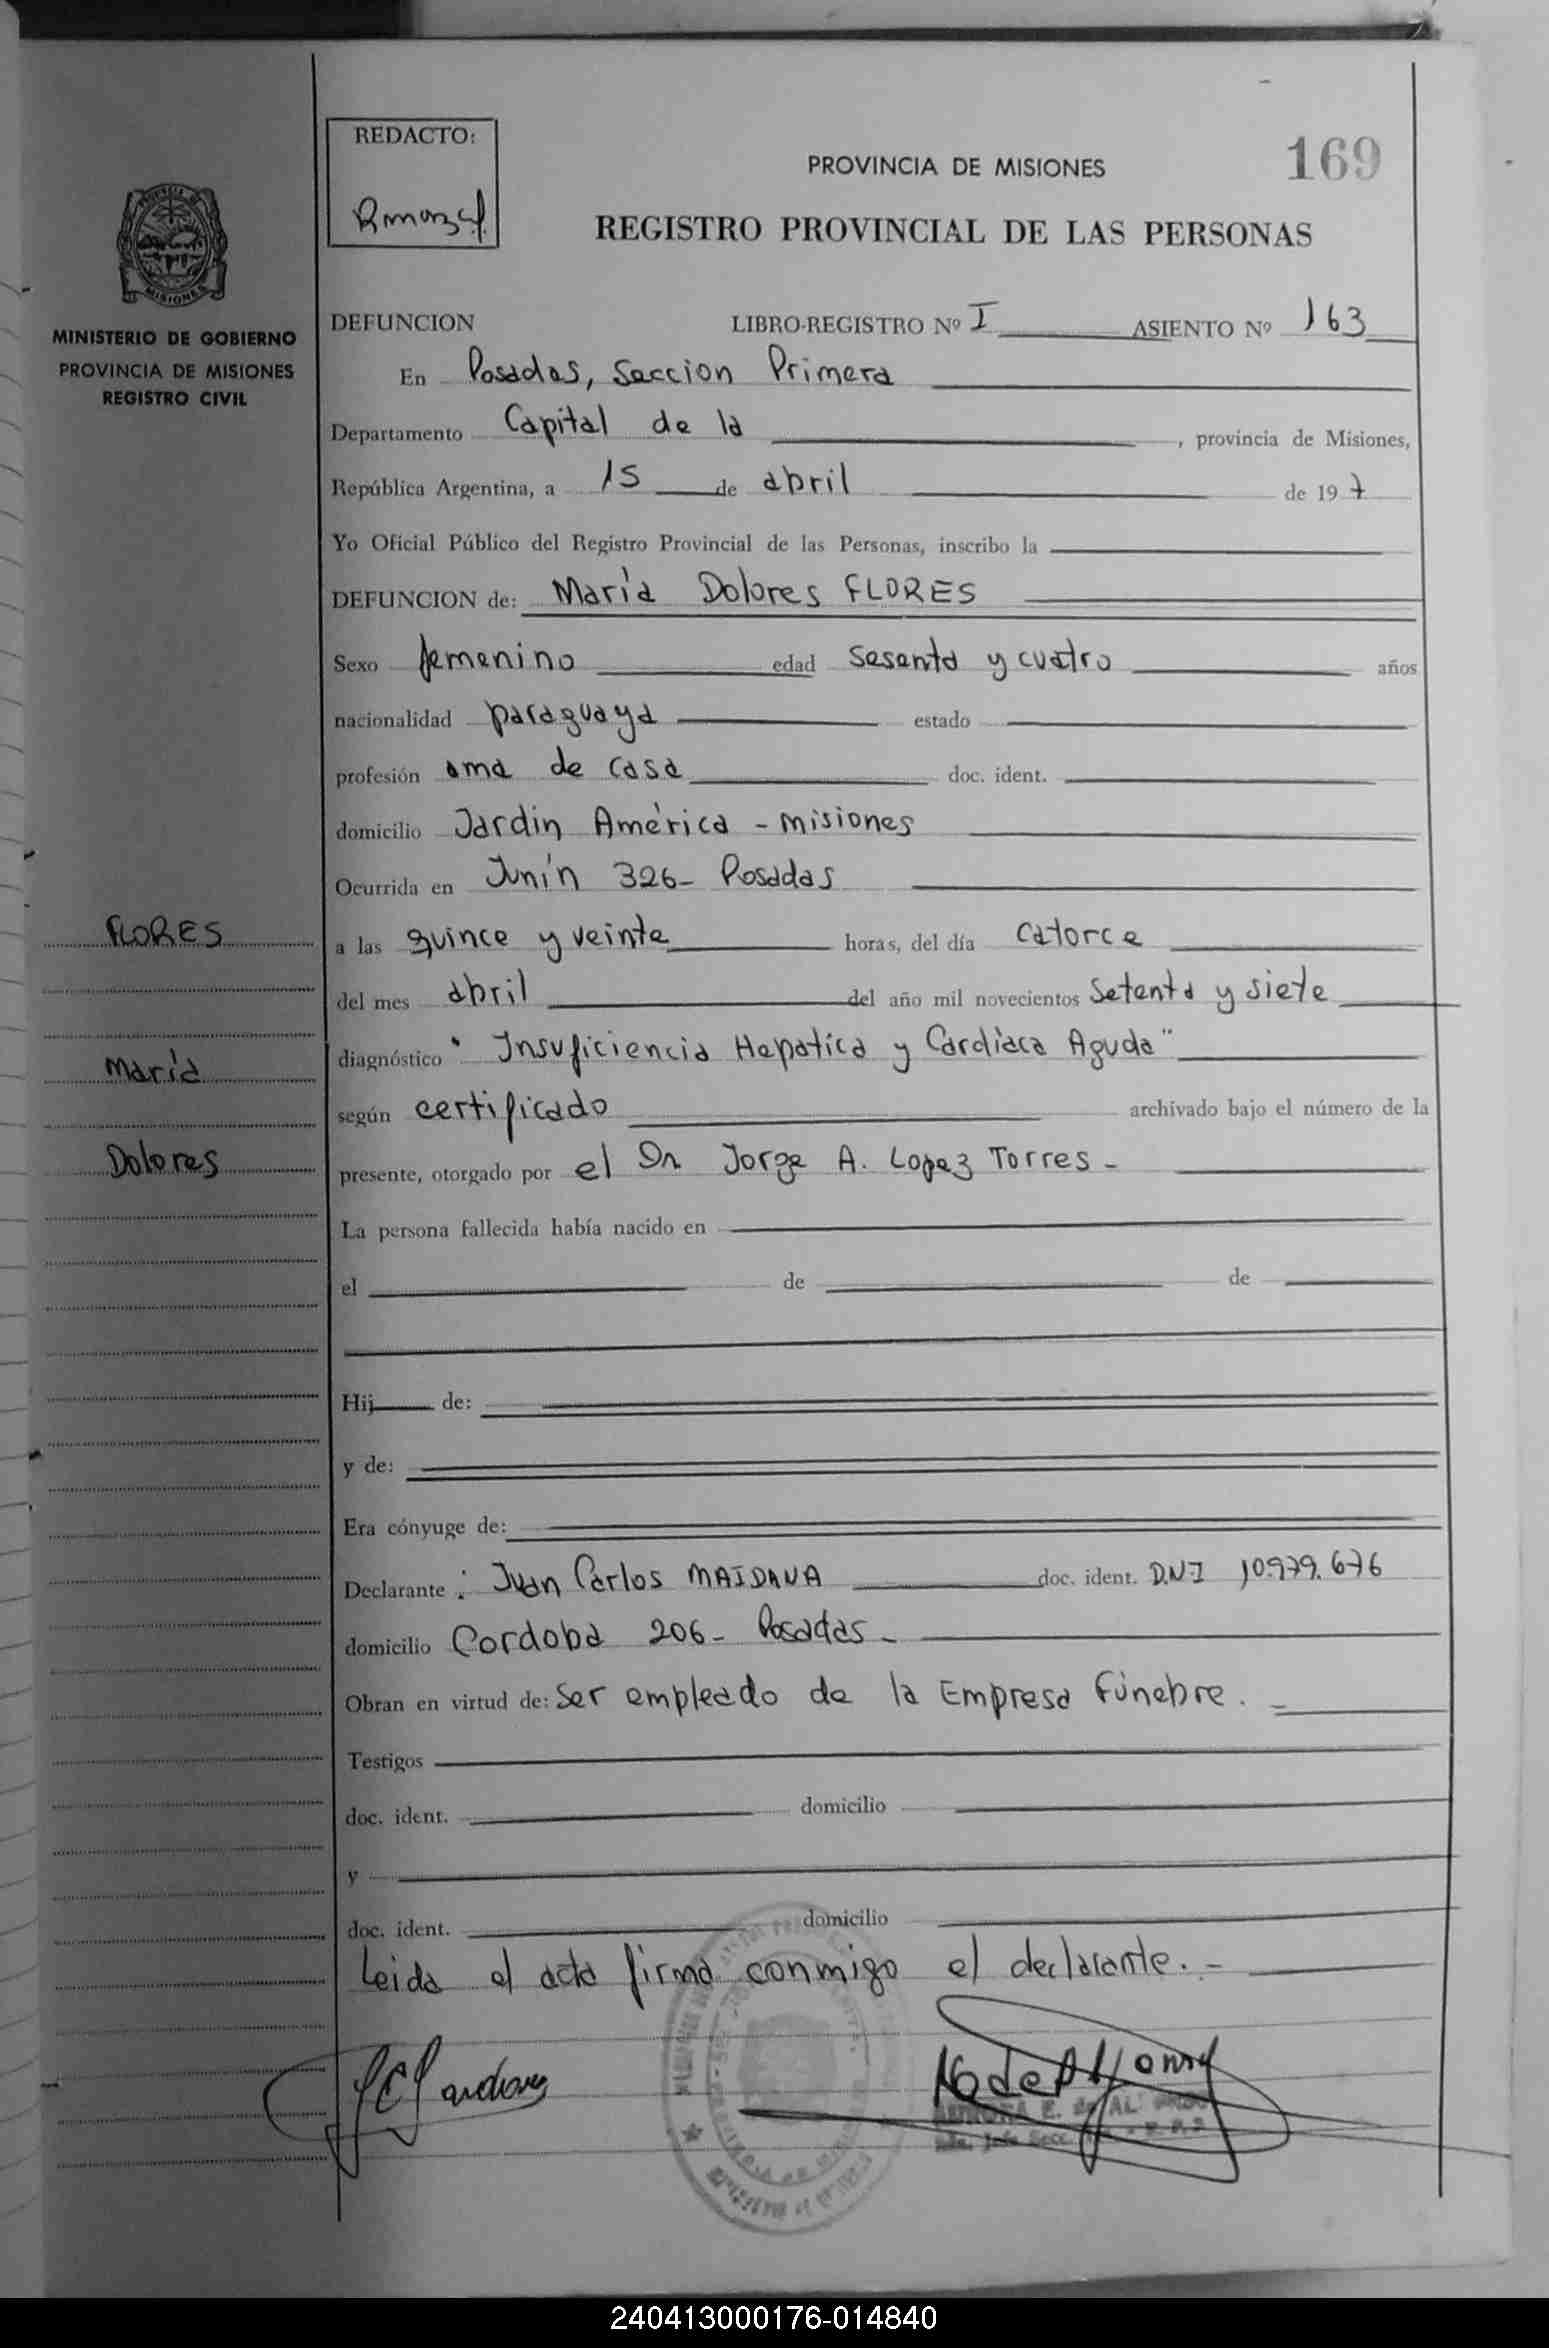 REDACTO:
PROVINCIA DE MISIONES
169
REGISTRO PROVINCIAL DE LAS PERSONAS
MISIONES
MINISTERIO DE GOBIERNO
PROVINCIA DE MISIONES
REGISTRO CIVIL
DEFUNCION LIBRO-REGISTRO Nº I ASIENTO Nº 163
En Posadas, Seccion Primera
Departamento Capital de la , provincia de Misiones,
República Argentina, a 15 de abril de 197
Yo Oficial Público del Registro Provincial de las Personas, inscribo la
DEFUNCION de: María Dolores FLORES
Sexo femenino edad sesenta y cuatro años
nacionalidad paraguaya estado
profesión ama de casa doc. ident.
domicilio Jardin América - misiones
Ocurrida en Junín 326- Posadas
FLORES
a las quince y veinte horas, del día catorce
del mes abril del año mil novecientos setenta y siete
María
diagnóstico " Insuficiencia Hepatica y Cardíaca Aguda"
según certificado archivado bajo el número de la
Dolores
presente, otorgado por el Dr Jorge A. Lopez Torres-
La persona fallecida había nacido en
el de de
Hij de:
y de:
Era cónyuge de:
Declarante : Juan Carlos MAIDANA doc. ident. D.N.I 10.979.676
domicilio Cordoba 206- Posadas-
Obran en virtud de: ser empleado de la Empresa Fúnebre.-
Testigos
doc. ident. domicilio
y
doc. ident. domicilio
Leida el acta firma conmigo el declarante.-
240413000176-014840